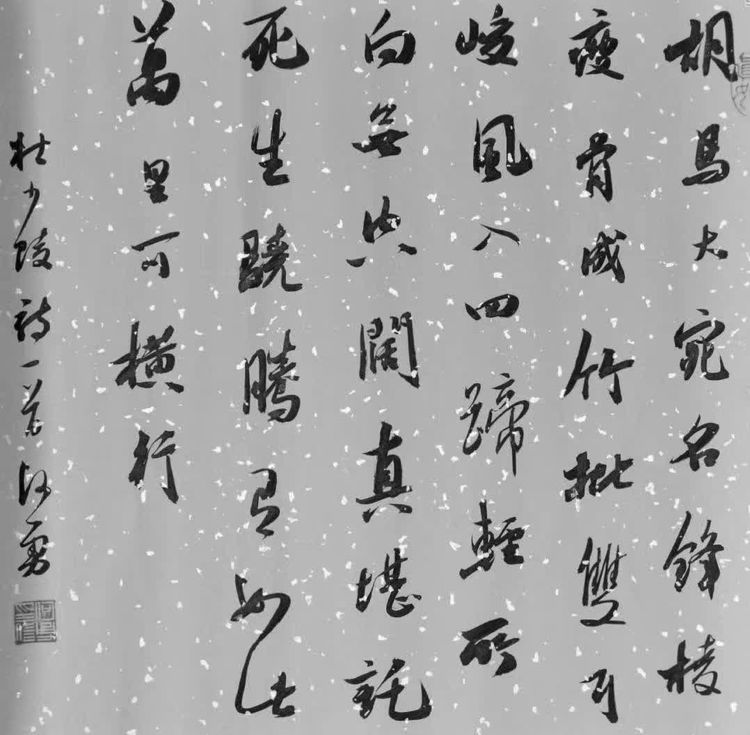 胡馬大宛名鋒棱
瘦骨成竹批雙耳
峻風入四蹄輕所
向無空闊真堪託
死生驍騰有如此
萬里可橫行
杜少陵詩一首